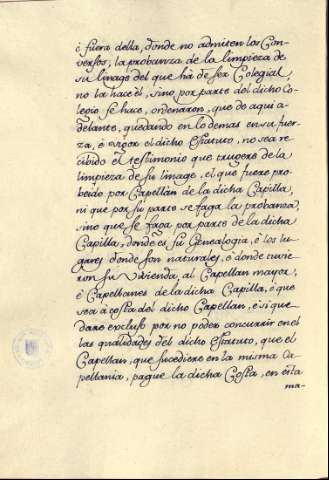 ó fuera della, donde no admiten los Con-
versos, la probanza de la limpieza de
su linage del que há de ser Colegial,
no la hace él, sino por parte del dicho Co-
legio se hace, ordenaron, que de aqui a-
delante, quedando en lo demas en su fuer-
za, é vigor el dicho Estatuto, no sea re-
cibido el testimonio que truxere de la
limpieza de su linage, el que fuere pro-
beido por Capellan de la dicha Capilla,
ni que por su parte se faga la probanza,
sino que se faga por parte de la dicha
Capilla, donde es su Genealogia, ó los lu-
gares donde son naturales, ó donde tuvie-
ron su Vivienda, al Capellan mayor,
é Capellanes de la dicha Capilla, ó que
sea á costa del dicho Capellan, é si que-
dare excluso por no poder concurrir en el
las qualidades del dicho Estatuto, que el
Capellan, que sucediere en la misma Ca-
pellania, pague la dicha Costa, en esta
ma-